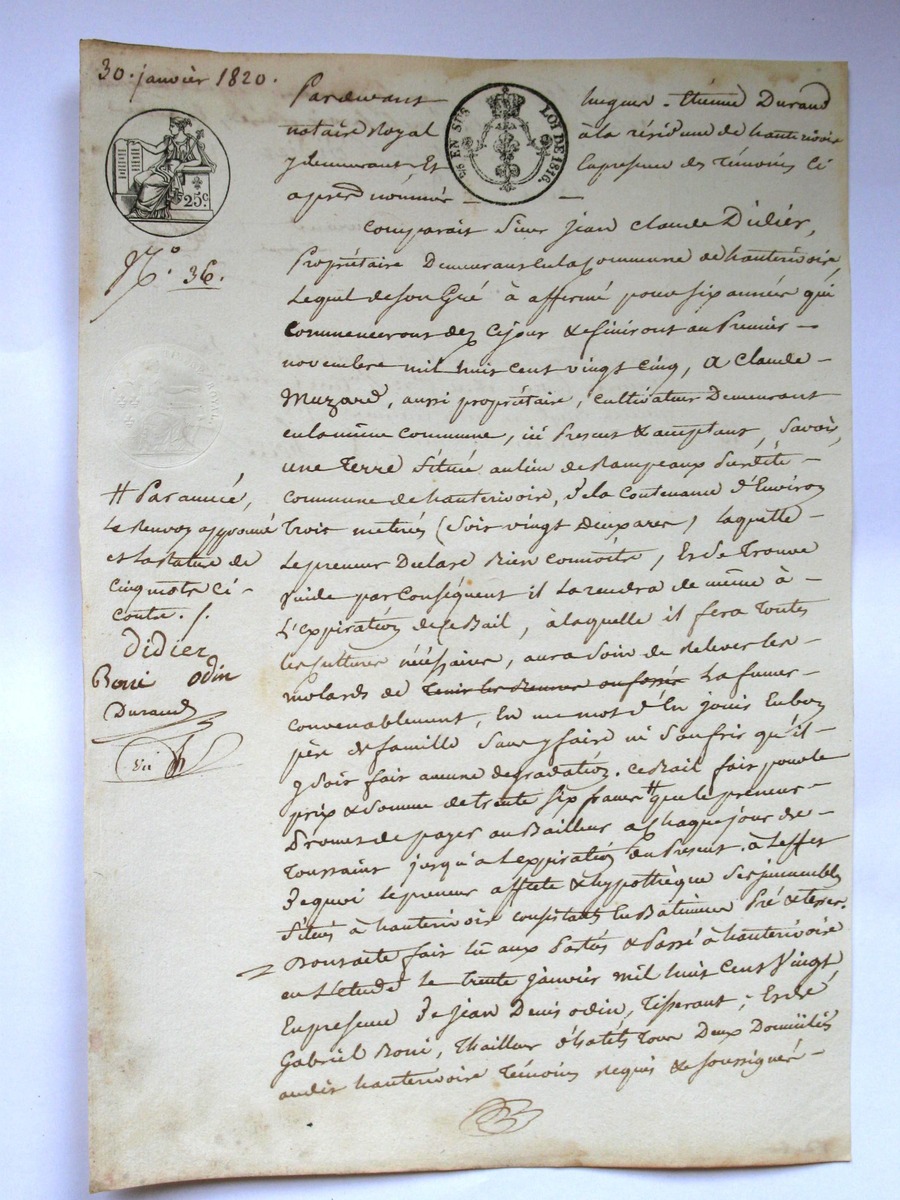 30. janvier 1820.
Pardevant hugue. Étienne Durand
notaire Royal à la résidence de hauterivoire
y demeurant, Et En presence des témoins ci
après nommés
25c
EN SUS LOI DE 1816.
N.o 36.
Comparait Sieur jean Claude Didier,
Propriétaire Demeurant En la Commune de hauterivoire
Lequel de son Gré à affermé pour six années qui
Commenceront dez cejour & finiront au Premier
novembre mil huit cent vingt cinq, a Claude
Muzard, aussi propriétaire, cultivateur Demeurant
en la même commune, ici Present & acceptant, Savoir,
une Terre Située au lieu de Rampeaux Susdite
Commune de hauterivoire, de la Contenance d'Environ
Trois meterées (soit vingt deux ares) laquelle
Le preneur Declare Bien connoitre, Et se Trouve
Vuide par Conséquent il La rendra de même à
L'Expiration de ce Bail, à laquelle il fera Toutes
les cultures nécéssaires, aura Soin de relever les
molards de Tenir les au fossé La fumer
convenablement, En un mot d'En jouir En bon
père de famille Sans y faire ni Soufrir qu'il
y Soit fait aucune degradation. Ce Bail fait pour le
prix & Somme de trente six francs # que le preneur
Promet de payer au Bailleur a Chaque jour de
Toussaint jusqu'a L'expiration du Present. à L'effet
De quoi Le preneur affecte & hypothèque Ses immeubles
Situés à hauterivoire consistants En Bâtiment Pré & terre.
Dont acte fait lu aux Parties & Passé à hauterivoire
en L'étude Le trente janvier mil huit cent Vingt
En presence De Jean Denis odin, Tisserant, Et de
Gabriël Boni, Thailleur d'habits Tous Deux Domiciliés
audit hauterivoire Témoins requis & soussignés
# Par année,
Le Renvoy approuvé
et la Rature de
cinq mots ci
contre. /.
Didier
Boni odin
Durand